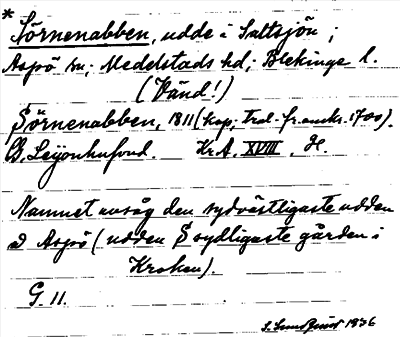 * Törnenabben, udde i Saltsjön;
Aspö sn; Medelstads hd; Blekinge l.
(Vänd!)
Törnenabben, 1811 (kop; trol. fr. omkr. 1700).
B. Leijonhufvud. Kr.A. XVIII. H.
Namnet avsåg den sydvästligaste udden
å Aspö (udden S sydligaste gården i
Kroken).
G. 11.
1936